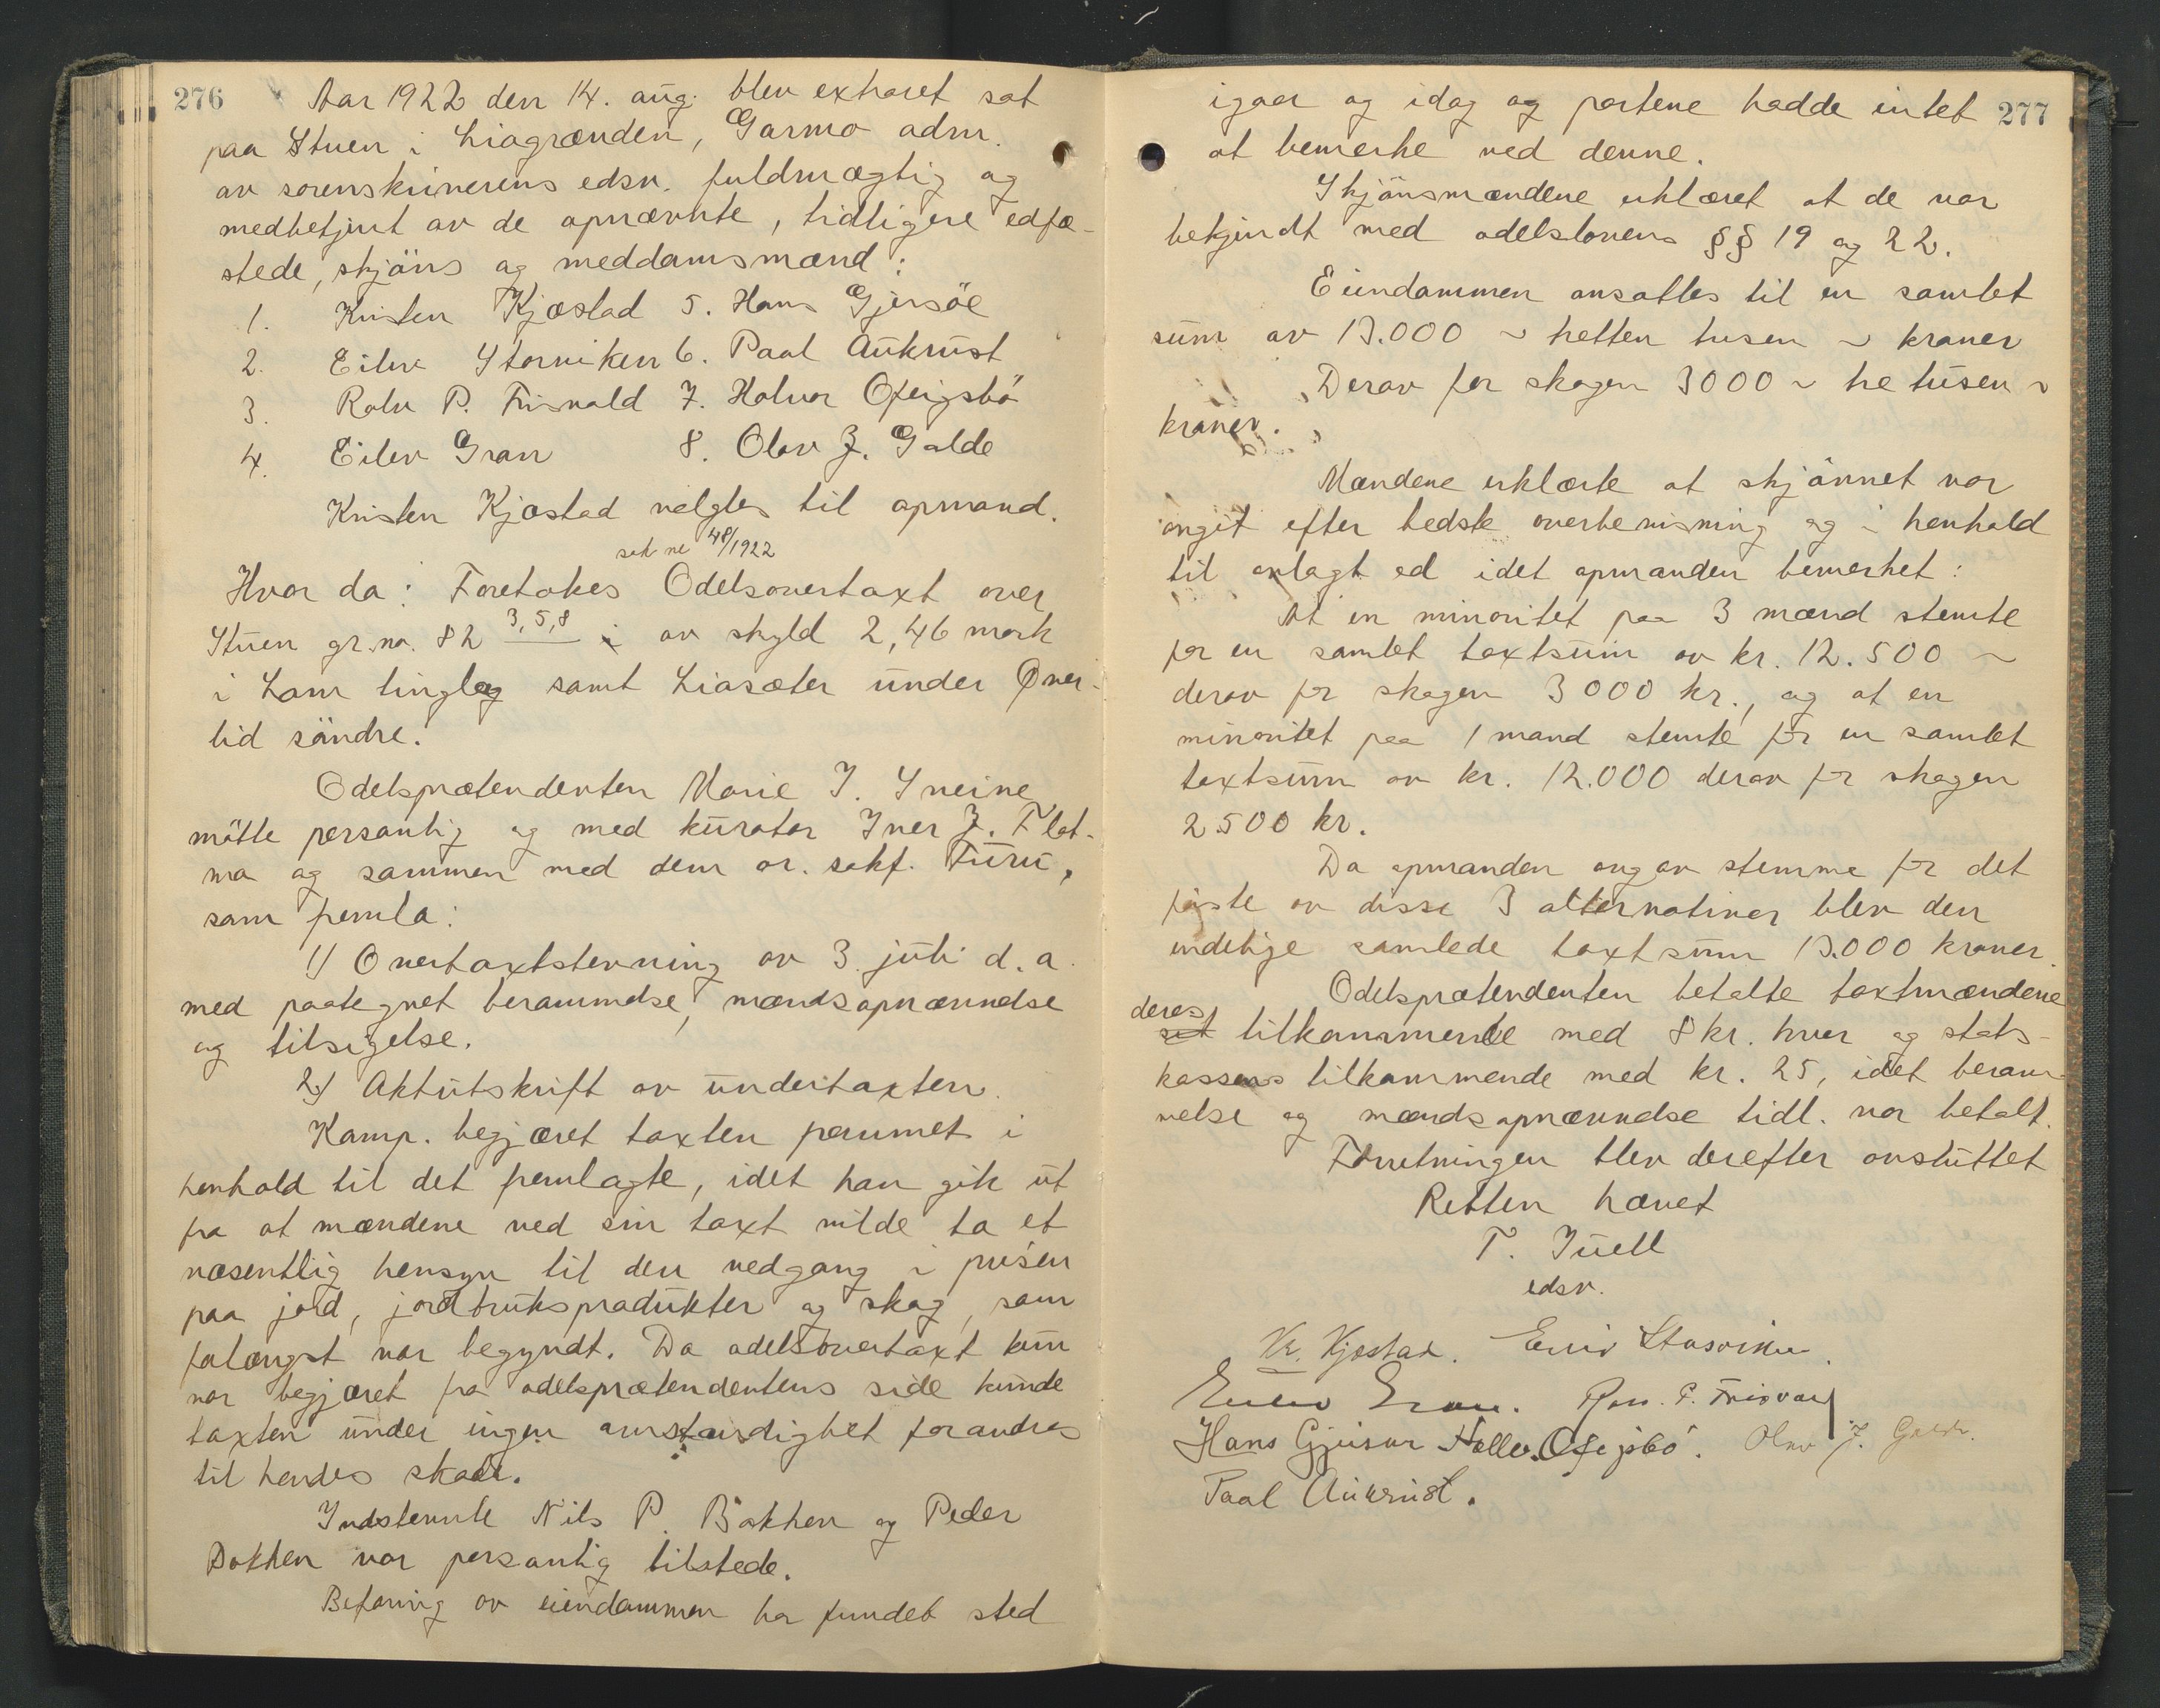 276
Aar 1922 den 14. aug. blev extraret sat
paa Stuen i Liagrænden, Garmo adm.
av sorenskriverens edsv. fuldmægtig og
medbetjent av de opnævnte, tidligere edfæ-
stede, skjøns og meddomsmænd:
1. Kristen Kjæstad 5. Hans Gjersøe
2. Eilev Storviken 6. Paal Aukrust
3. Rolv P. Frisvold 7. Halvor Ofeigsbø
4. Eilev Gran 8. Olav J. Galde
Kristen Kjæstad valgtes til opmand.
sak nr 48/1922
Hvor da: Foretokes Odelsovertaxt over
Stuen gr. no. 82 3,5,8 av skyld 2,46 mark
i Lom tinglag samt Liasæter under Øver-
lid søndre.
Odelsprætendenten Marie I. Sveine
møtte personlig og med kurator Iver J. Flot-
mo og sammen med dem or. sakf. Furu,
som fremla:
1) Overtaxtstevning av 3 juli d. a.
med paategnet berammelse, mandsopnævnelse
og tilsigelse.
2) Aktutskrift av undertaxten.
Komp. begjæret taxten fremmet i
henhold til det fremlagte, idet han gik ut
fra at mændene ved sin taxt vilde ta et
væsentlig hensyn til den nedgang i prisen
paa jord, jordbruksprodukter og skog, som
forlængst var begyndt. Da odelsovertaxt kun
var begjæret fra odelsprætendentens side kunde
taxten under ingen omstændighet forandres
til hendes skade.
Indstevnte Nils P. Bakken og Peder
Bakken var personlig tilstede.
Befaring av eiendommen har fundet sted
277
igaar og idag og partene hadde intet
at bemerke ved denne.
Skjønsmændene erklæret at de var
bekjendt med odelslovens §§ 19 og 22.
Eiendommen ansattes til en samlet
sum av 13.000 ~ tretten tusen ~ kroner
Derav for skogen 3000 ~ tre tusen ~
kroner.
Mændene erklærte at skjønnet var
avgit efter bedste overbevisning og i henhold
til avlagt ed idet opmanden bemerket:
At en minoritet paa 3 mænd stemte
for en samlet taxtsum av kr. 12.500 ~
derav for skogen 3000 kr., og at en
minoritet paa 1 mand stemte for en samlet
taxtsum av kr. 12.000 derav for skogen
2500 kr.
Da opmanden avgav stemme for det
første av disse 3 alternativer blev den
endelige samlede taxtsum 13.000 kroner.
Odelsprætendenten betalte taxtmændene
deres
sit tilkommende med 8 kr. hver og stats-
kassens tilkommende med kr. 25, idet beram-
melse og mandsopnævnelse tidl. var betalt.
Forretningen blev derefter avsluttet
Retten hævet
T. Juell
edsv.
Kr. Kjæstad. Eiliv Storviken.
Eilev Gran. Rolv. P. Frisvold
Hans Gjersøe Hallv. Ofeigsbø. Olav J. Galde.
Paal Aukrust.